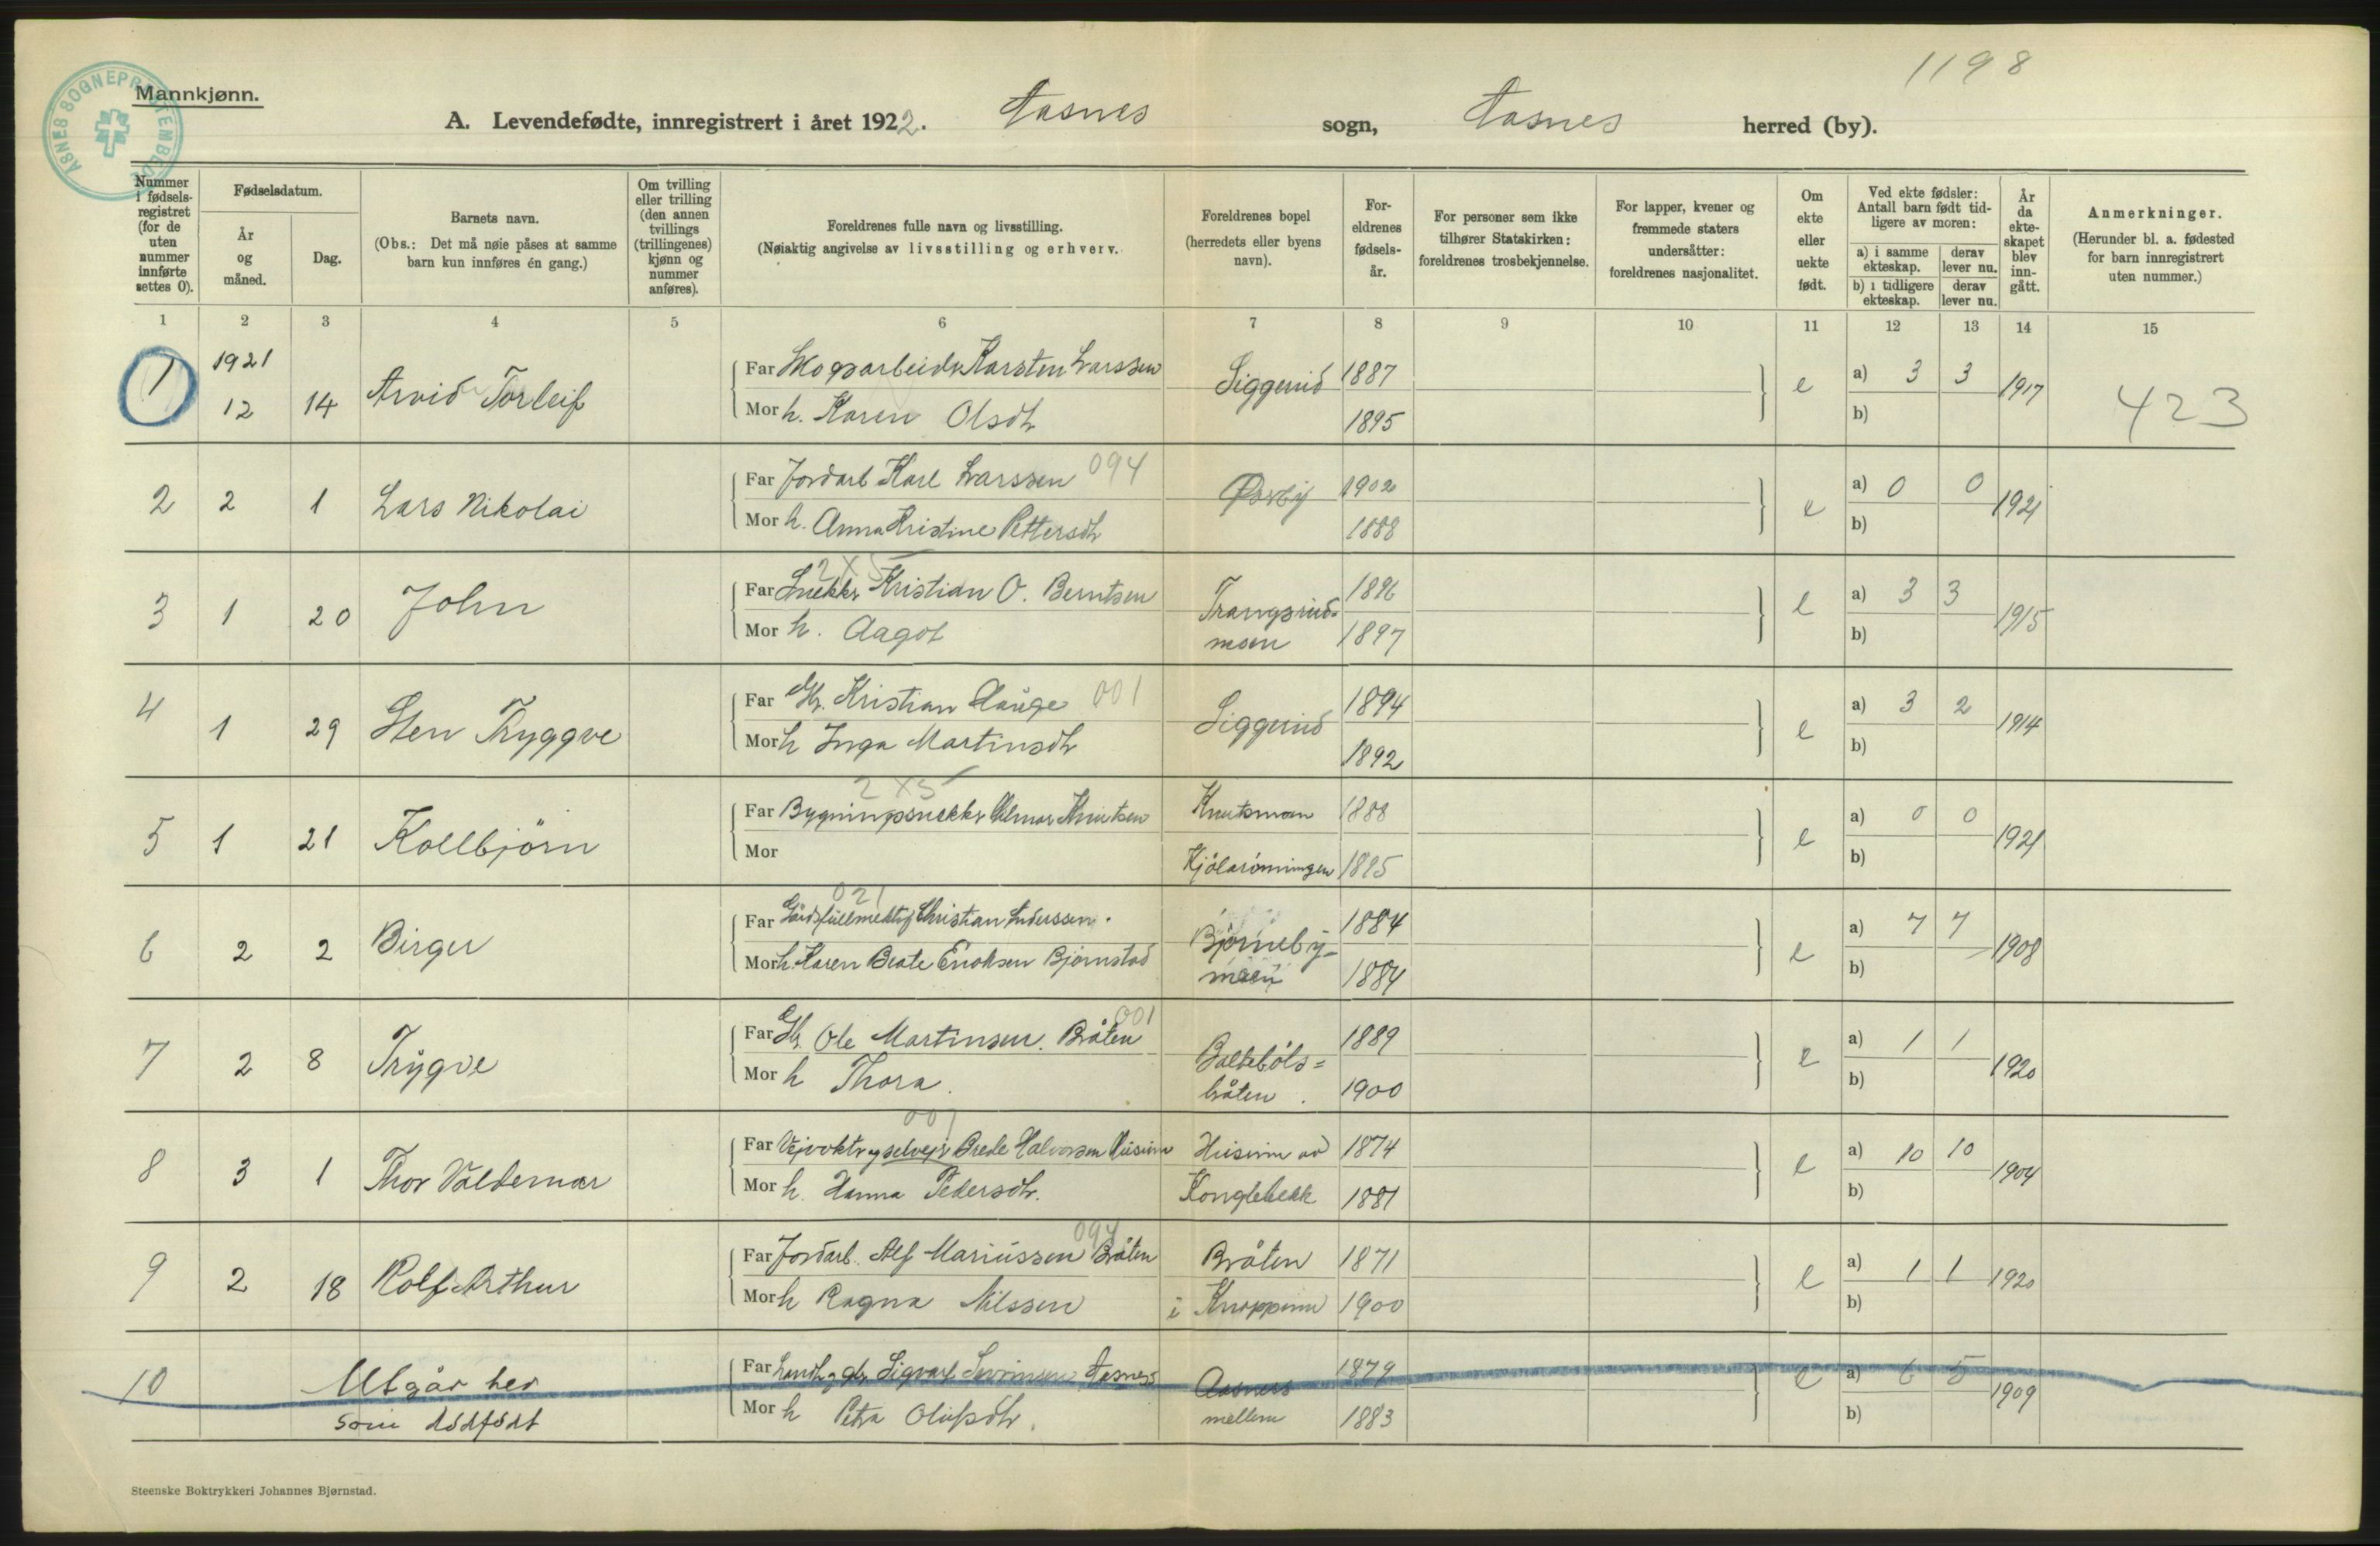 1198
ÅSNES SOGNEPRESTEMBEDE
Mannkjønn.
A. Levendefødte, innregistrert i året 1922. Aasnes sogn, Aasnes herred (by).
Nummer i fødsels-registret (for de uten nummer innførte settes 0).
Fødselsdatum.
År og måned.
Dag.
Barnets navn.
(Obs.: Det må nøie påses at samme barn kun innføres én gang.)
Om tvilling eller trilling (den annen tvillings (trillingenes) kjønn og nummer anføres).
Foreldrenes fulle navn og livsstilling.
(Nøiaktig angivelse av livsstilling og erhverv.
Foreldrenes bopel (herredets eller byens navn).
For-eldrenes fødsels-år.
For personer som ikke tilhører Statskirken: foreldrenes trosbekjennelse.
For lapper, kvener og fremmede staters undersåtter: foreldrenes nasjonalitet.
Om ekte eller uekte født.
Ved ekte fødsler: Antall barn født tid-ligere av moren:
a) i samme ekteskap. derav lever nu.
b) i tidligere ekteskap. derav lever nu.
År da ekte-skapet blev inn-gått.
Anmerkninger.
(Herunder bl. a. fødested for barn innregistrert uten nummer.)
1 2 3 4 5 6 7 8 9 10 11 12 13 14 15
1 1921 12 14 Arvid Torleif
Far Skogsarbeider Karsten Larssen Siggerud 1887 e a) 3 3 1917 423
Mor h. Karen Olsdtr 1895 b)
2 2 1 Lars Nikolai
Far Jordarb Karl Larssen 094 1902 e a) 0 0 1921
Mor h. Anna Kristine Pettersdtr 1888 b)
2 X 5
3 1 20 John
Far Snekker Kristian O. Berntsen 1896 e a) 3 3 1915
Mor h. Aagot moen 1897 b)
4 1 29 Sten Tryggve
Far Gbr. Kristian Hauge 001 Siggerud 1894 e a) 3 2 1914
Mor h Inga Martinsdtr 1892 b)
2 X 5
5 1 21 Kollbjörn
Far Bygningssnekker Hilmar Knutsen Knutsmoen 1888 e a) 0 0 1921
Mor Kjölarönningen 1895 b)
021
6 2 2 Birger
Far Gårdsfullmektig Christian Anderssen. Björneby= 1884 e a) 7 7 1908
Mor h. Karen Beate Enoksen Bjørnstad moen 1884 b)
001
7 2 8 Trygve
Far Gbr. Ole Martinsen. Bråten 1889 e a) 1 1 1920
Mor h Thora. bråten. 1900 b)
001
8 3 1 Thor Valdemar
Far Veivokter og selveier Brede Halvorsen Husum Husum av 1874 e a) 10 10 1904
Mor h. Hanna Pedersdtr. Konglebekk 1881 b)
094
9 2 18 Rolf Arthur
Far Jordarb. Alf Mariussen Bråten Bråten 1871 e a) 1 1 1920
Mor h Ragna Nilssen i 1900 b)
10 Utgår her
som dödfödt
Far Landh. og gbr. Sigvart Sevrinsen Aasnes Aasnes 1879 e a) 6 5 1909
Mor h Petra Olufsdtr. mellem 1883 b)
Steenske Boktrykkeri Johannes Bjørnstad.